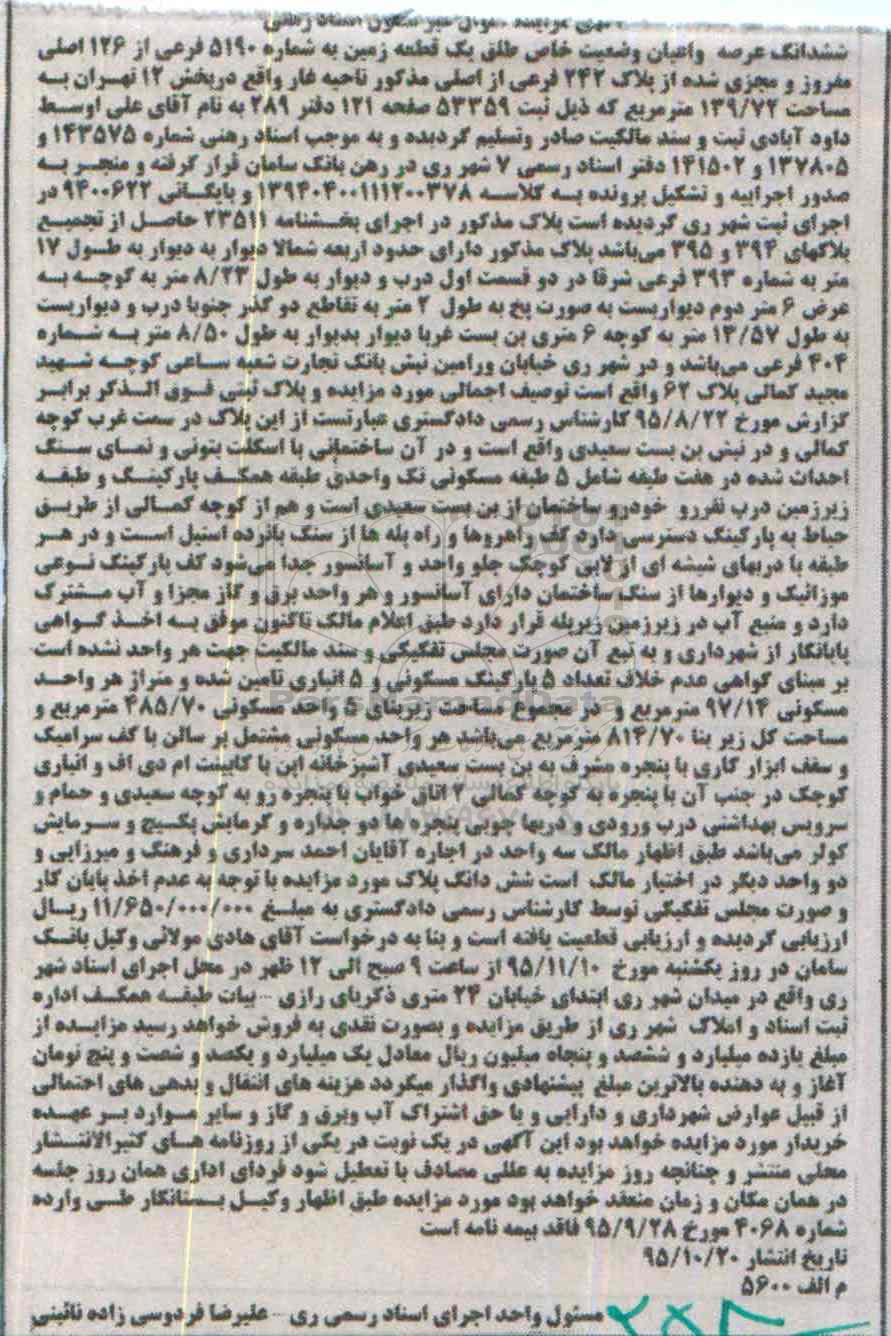 آگهی مزایده اموال غیر منقول اسناد رهنی
ششدانگ عرصه واعیان وضعیت خاص طلق یک قطعه زمین به شماره ۵۱۹۰ فرعی از ۱۲۶ اصلی
مفروز و مجزی شده از پلاک ۲۴۲ فرعی از اصلی مذکور ناحیه غار واقع دربخش ۱۲ تهران به
مساحت ۱۳۹/۷۲ مترمربع که ذیل ثبت ۵۳۳۵۹ صفحه ۱۲۱ دفتر ۲۸۹ به نام آقای علی اوسط
داود آبادی ثبت و سند مالکیت صادر وتسلیم گردیده و به موجب اسناد رهنی شماره ۱۴۳۵۷۵ و
۱۳۷۸۰۵ و ۱۴۱۵۰۲ دفتر اسناد رسمی ۷ شهر ری در رهن بانک سامان قرار گرفته و منجر به
صدور اجراییه و تشکیل پرونده به کلاسه ۱۳۹۴۰۴۰۰۱۱۱۲۰۰۳۷۸ و بایگانی ۹۴۰۰۶۲۲ در
اجرای ثبت شهر ری گردیده است پلاک مذکور در اجرای بخشنامه ۲۳۵۱۱ حاصل از تجمیع
پلاکهای ۳۹۴ و ۳۹۵ می‌باشد پلاک مذکور دارای حدود اربعه شمالا دیوار به دیوار به طول ۱۷
متر به شماره ۳۹۳ فرعی شرقا در دو قسمت اول درب و دیوار به طول ۸/۲۳ متر به کوچه به
عرض ۶ متر دوم دیواریست به صورت پخ به طول ۲ متر به تقاطع دو گذر جنوبا درب و دیواریست
به طول ۱۴/۵۷ متر به کوچه ۶ متری بن بست غربا دیوار بدیوار به طول ۸/۵۰ متر به شماره
۴۰۴ فرعی می‌باشد و در شهر ری خیابان ورامین نبش بانک تجارت شعبه ساعی کوچه شهید
مجید کمالی پلاک ۶۲ واقع است توصیف اجمالی مورد مزایده و پلاک ثبتی فوق الذکر برابر
گزارش مورخ ۹۵/۸/۲۲ کارشناس رسمی دادگستری عبارتست از این پلاک در سمت غرب کوچه
کمالی و در نبش بن بست سعیدی واقع است و در آن ساختمانی با اسکلت بتونی و نمای سنگ
احداث شده در هفت طبقه شامل ۵ طبقه مسکونی تک واحدی طبقه همکف پارکینگ و طبقه
زیرزمین درب نفررو خودرو ساختمان از بن بست سعیدی است و هم از کوچه کمالی از طریق
حیاط به پارکینگ دسترسی دارد کف راهروها و راه پله ها از سنگ بانرده استیل است و در هر
طبقه با دربهای شیشه ای از لابی کوچک جلو واحد و آسانسور جدا می‌شود کف پارکینگ نوعی
موزائیک و دیوارها از سنگ ساختمان دارای آسانسور و هر واحد برق و گاز مجزا و آب مشترک
دارد و منبع آب در زیرزمین زیرپله قرار دارد طبق اعلام مالک تاکنون موفق به اخذ گواهی
پایانکار از شهرداری و به تبع آن صورت مجلس تفکیکی و سند مالکیت جهت هر واحد نشده است
بر مبنای گواهی عدم خلاف تعداد ۵ پارکینگ مسکونی و ۵ انباری تامین شده و متراژ هر واحد
مسکونی ۹۷/۱۴ مترمربع و در مجموع مساحت زیربنای ۵ واحد مسکونی ۴۸۵/۷۰ مترمربع و
مساحت کل زیر بنا ۸۱۴/۷۰ مترمربع می‌باشد هر واحد مسکونی مشتمل بر سالن با کف سرامیک
و سقف ابزار کاری با پنجره مشرف به بن بست سعیدی آشپزخانه اپن با کابینت ام دی اف و انباری
کوچک در جنب آن با پنجره به کوچه کمالی ۲ اتاق خواب با پنجره رو به کوچه سعیدی و حمام و
سرویس بهداشتی درب ورودی و دربها چوبی پنجره ها دو جداره و گرمایش پکیج و سرمایش
کولر می‌باشد طبق اظهار مالک سه واحد در اجاره آقایان احمد سرداری و فرهنگ و میرزایی و
دو واحد دیگر در اختیار مالک است شش دانگ پلاک مورد مزایده با توجه به عدم اخذ پایان کار
و صورت مجلس تفکیکی توسط کارشناس رسمی دادگستری به مبلغ ۱۱/۶۵۰/۰۰۰/۰۰۰ ریال
ارزیابی گردیده و ارزیابی قطعیت یافته است و بنا به درخواست آقای هادی مولائی وکیل بانک
سامان در روز یکشنبه مورخ ۹۵/۱۱/۱۰ از ساعت ۹ صبح الی ۱۲ ظهر در محل اجرای اسناد شهر
ری واقع در میدان شهر ری ابتدای خیابان ۲۴ متری ذکریای رازی - بیات طبقه همکف اداره
ثبت اسناد و املاک شهر ری از طریق مزایده و بصورت نقدی به فروش خواهد رسید مزایده از
مبلغ یازده میلیارد و ششصد و پنجاه میلیون ریال معادل یک میلیارد و یکصد و شصت و پنج تومان
آغاز و به دهنده بالاترین مبلغ پیشنهادی واگذار میگردد هزینه های انتقال و بدهی های احتمالی
از قبیل عوارض شهرداری و دارایی و یا حق اشتراک آب وبرق و گاز و سایر موارد بر عهده
خریدار مورد مزایده خواهد بود این آگهی در یک نوبت در یکی از روزنامه های کثیرالانتشار
محلی منتشر و چنانچه روز مزایده به عللی مصادف با تعطیل شود فردای اداری همان روز جلسه
در همان مکان و زمان منعقد خواهد بود مورد مزایده طبق اظهار وکیل بستانکار طی وارده
شماره ۴۰۶۸ مورخ ۹۵/۹/۲۸ فاقد بیمه نامه است
تاریخ انتشار ۹۵/۱۰/۲۰
م الف ۵۶۰۰
مسئول واحد اجرای اسناد رسمی ری - علیرضا فردوسی زاده نائینی